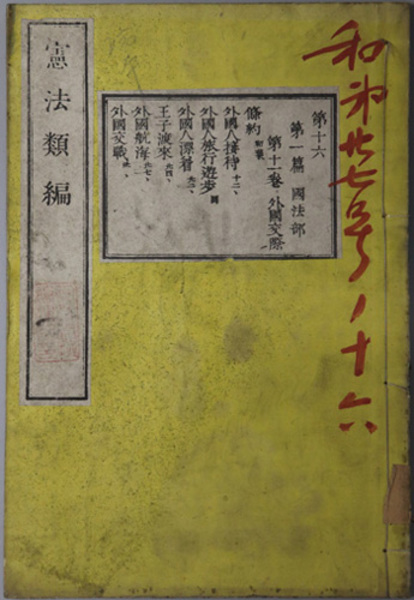 和第廿七号ノ十六
第十六
第一篇 國法部
第十一卷、外國交際
條約
外國人接待 十二、
外國人旅行遊歩
外國人漂着
王子渡來
外國航海
外國交戰
憲法類編